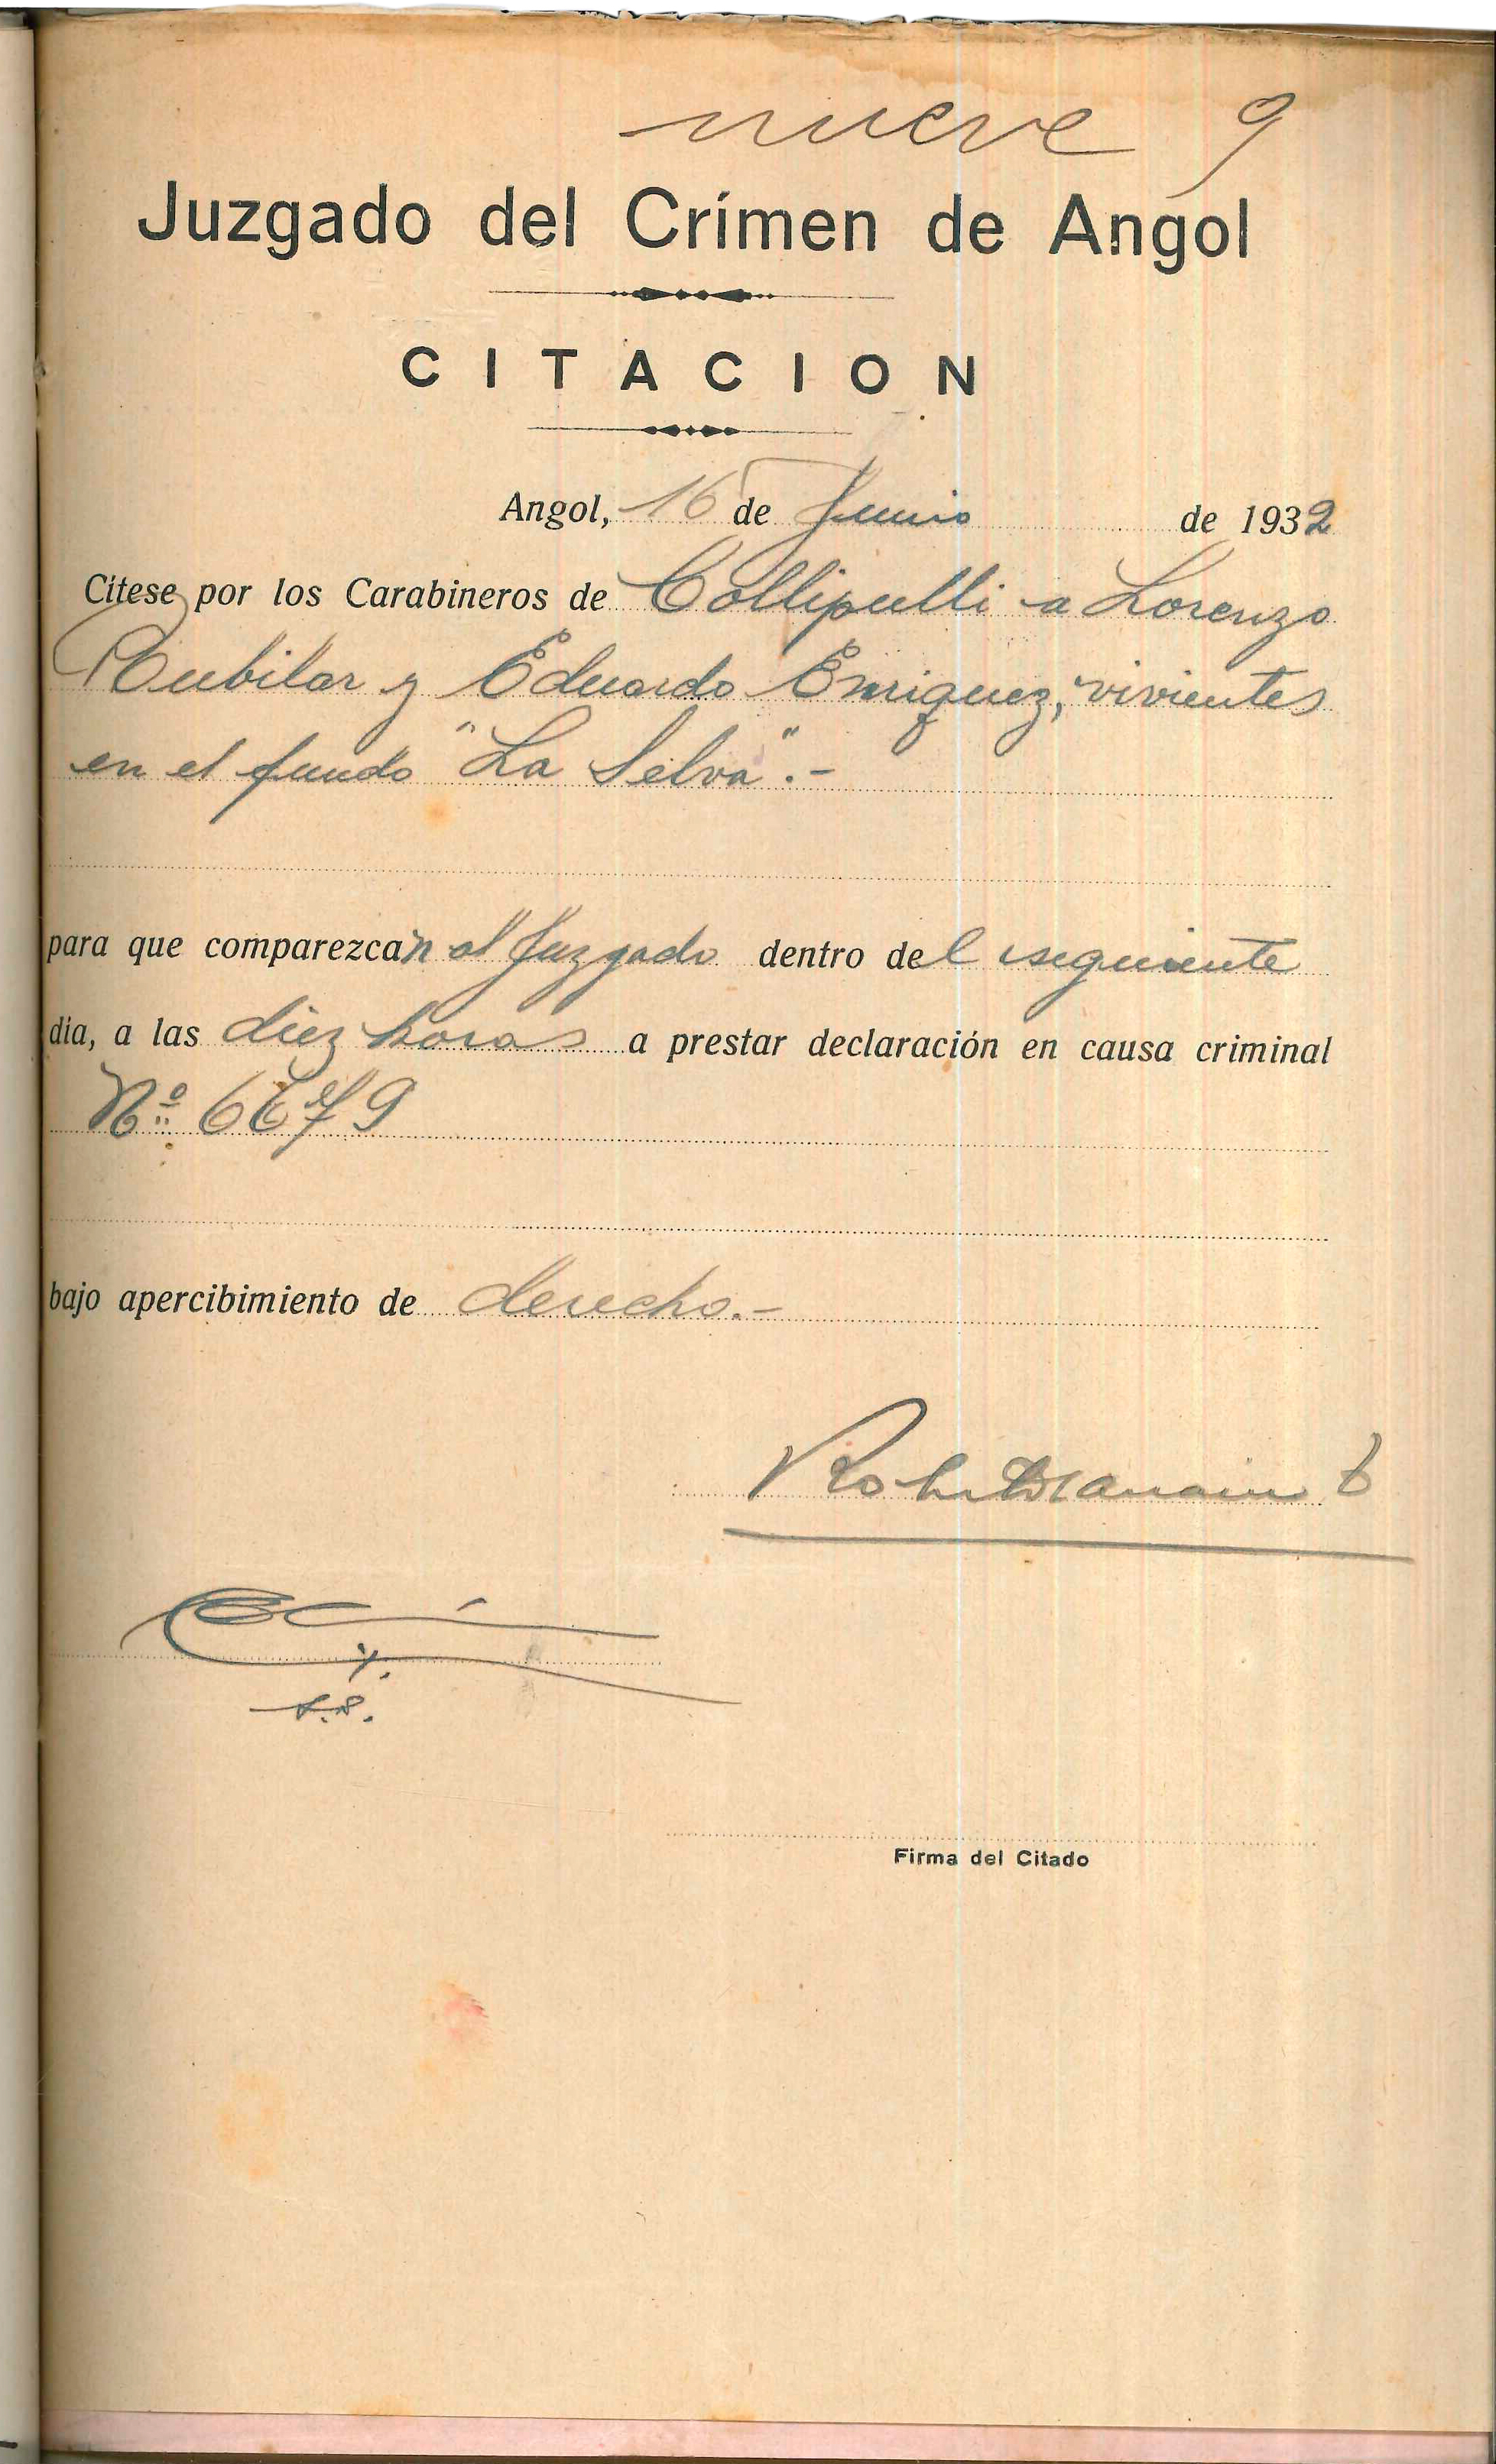 nueve 9
Juzgado del Crímen de Angol
CITACION
Angol, 16 de Junio de 1932
Cítese por los Carabineros de Collipulli a Lorenzo
Rubilar y Eduardo Enriquez, vivientes
en el fundo "La Selva".-
para que comparezcan al Juzgado dentro del seguiente
día, a las diez horas a prestar declaración en causa criminal
Nº
bajo apercibimiento de derecho.-
S.S.
Firma del Citado